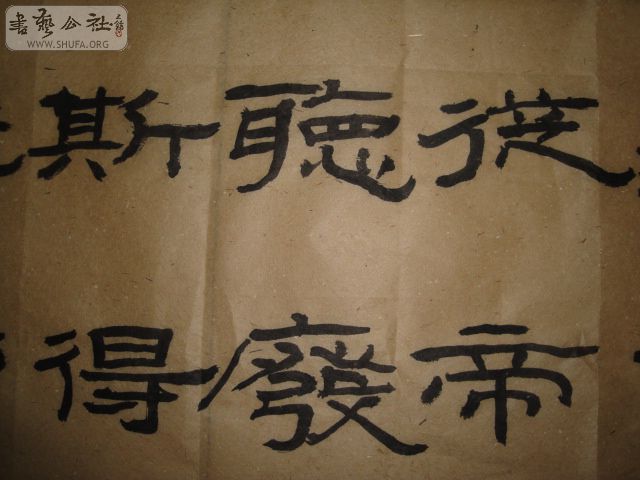 書藝公社
WWW.SHUFA.ORG
從帝
聽廢
斯得